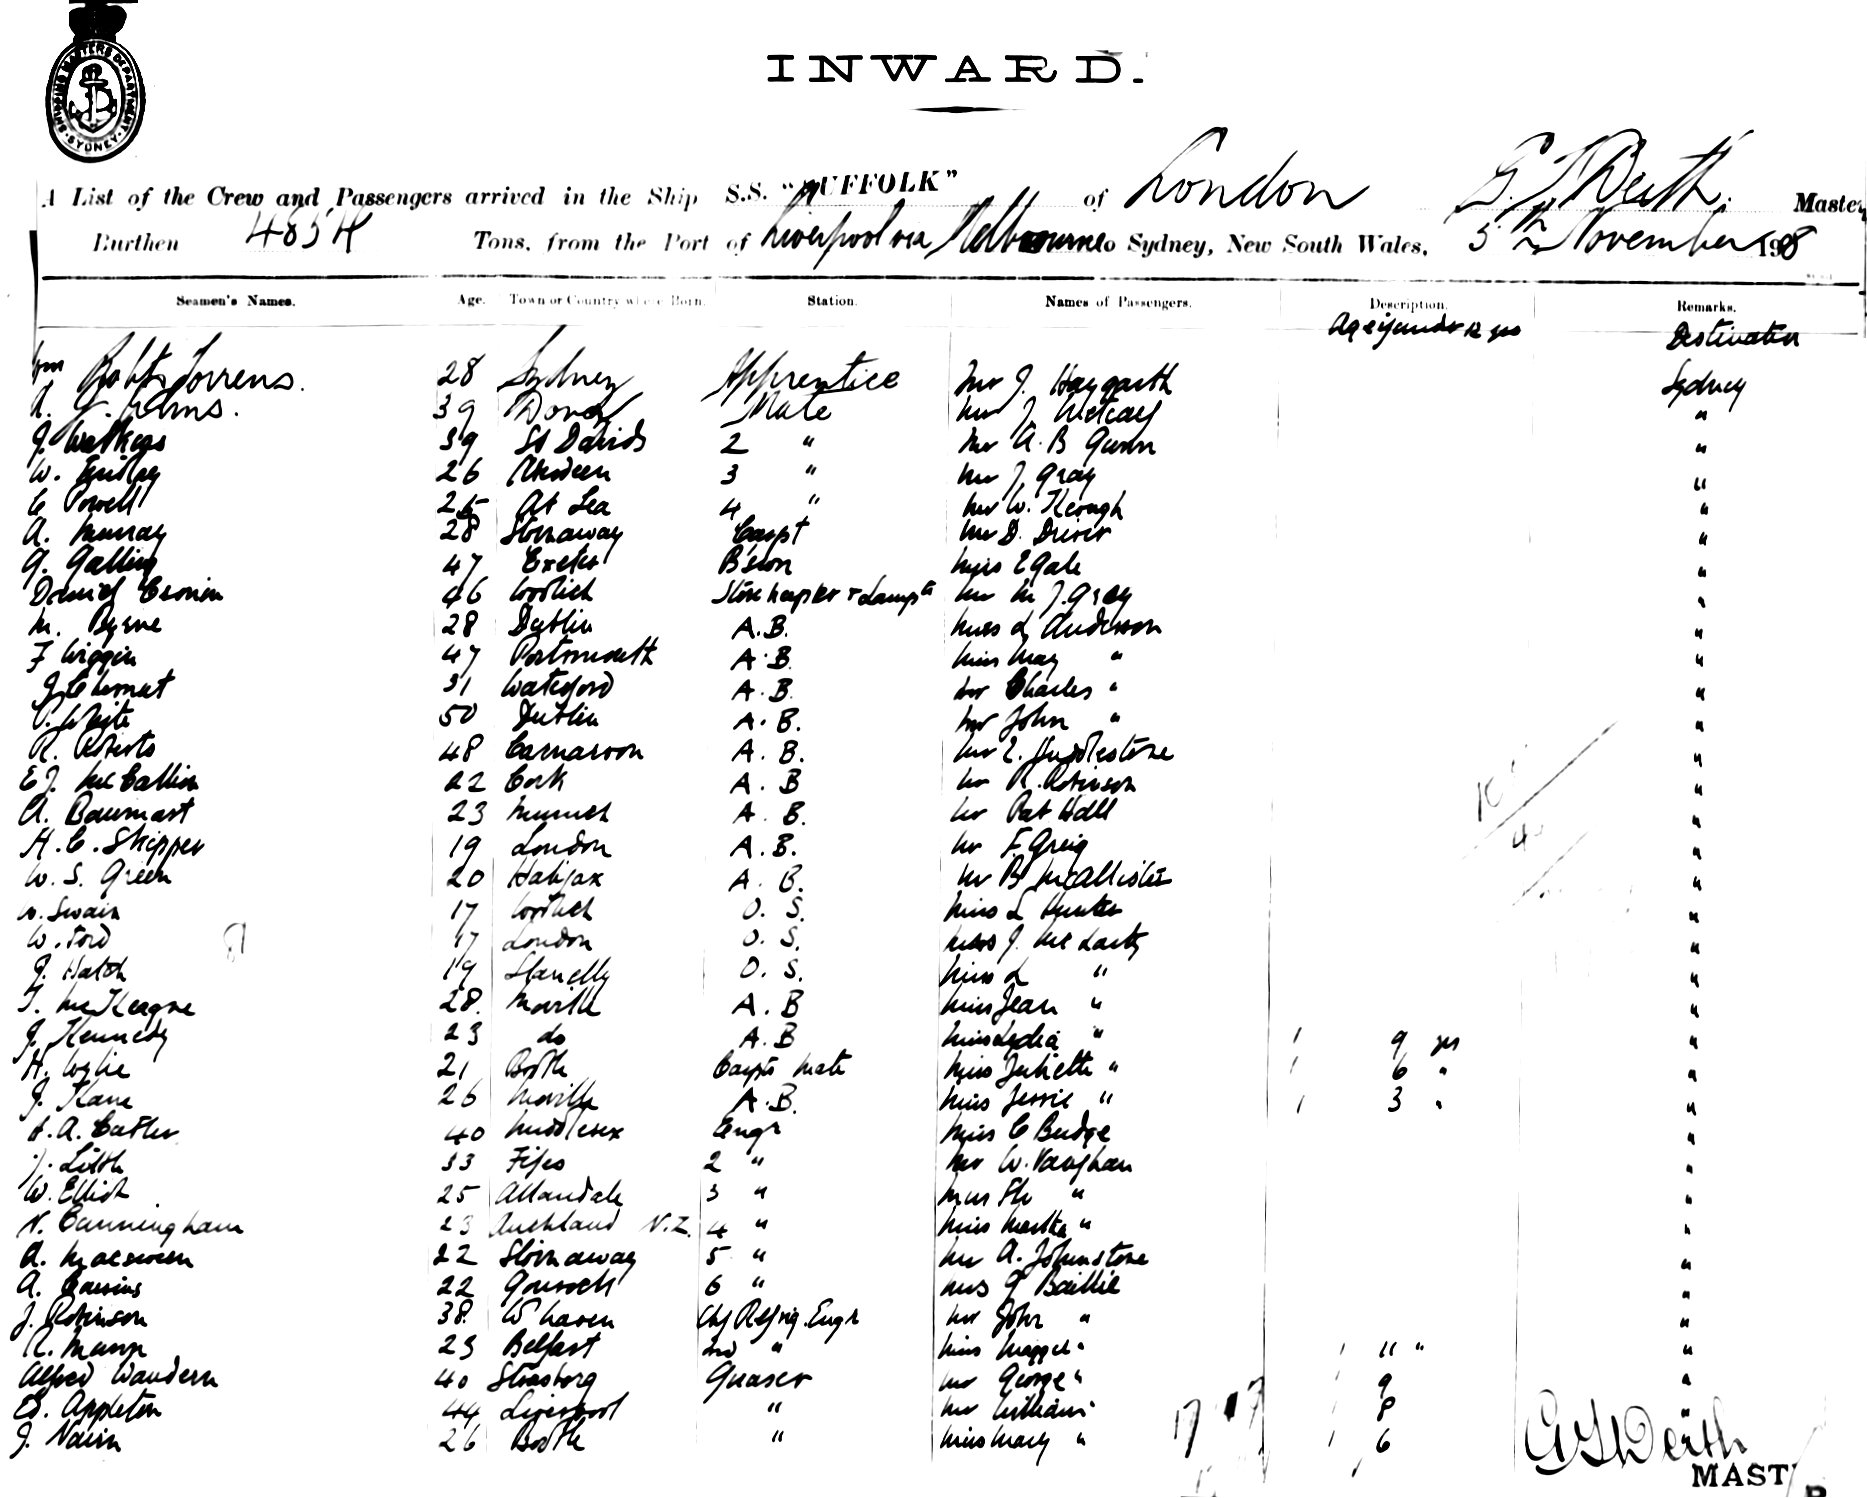 SHIPPING MASTERS DEPARTMENT SYDNEY
INWARD.
A List of the Crew and Passengers arrived in the Ship S.S. "SUFFOLK" of London Master
Burthen Tons, from the Port of Liverpool via Melbourne to Sydney, New South Wales, 5th November 1908
Seamen's Names. Age. Town or Country where Born. Station. Names of Passengers. Description. Remarks.
Age if under 12 yrs Destination
Robt Torrens. 28 Sydney Apprentice Mr J. Haygarth Sydney
39 Dover Mate Mr J. Metcalf "
J. Watkins 39 St Davids 2 " Mr A. B Gunn "
W. Findlay 26 Aberdeen 3 " Mr J. Gray "
C Powell 25 At Sea 4 " Mr W. Keough "
A. Murray 28 Stornaway Carpt Mr D. Driver "
G. 47 Exeter B'swn Miss E Gale "
Daniel Cronin 46 Woolich Storekeeper & Lamps Mr M J. Gray "
M. Byrne 28 Dublin A.B. Mrs L Anderson "
F Wiggin 47 Portsmouth A.B. Miss May " "
31 Waterford A.B. Mr Charles " "
White 50 Dublin A.B. Mr John " "
R. Roberts 48 Carnarvon A.B. Mr E. Huddlestone "
E J. McCallion 22 Cork A.B Mr R. Robinson "
A. Baumart 23 Munich A.B. Mr Pat Hall "
H. C. Skipper 19 London A.B. Mr F. Greig "
W. S. Green 20 Halifax A.B. Mr B McAllister "
Swain 17 Woolich O.S. Miss L Hunter "
W. Ford 17 London O.S. J. McLarty "
J. Hatch 19 Llanelly O.S. Miss L " "
T. McKeague 28. Moville A.B Miss Jean " "
J. Kennedy 23 do A.B Miss Lydia " 1 9 yrs "
H. Wylie 21 Bootle Carpts Mate Miss Juliette " 1 6 " "
J. Kane 26 Moville A.B. Miss Jessie " 1 3 " "
A. Catler 40 Middlesex Engr Miss C Budge "
J. Little 33 Fifes 2 " Mr W. Vaughan "
W. Elliot 25 Allandale 3 " " "
N. Cunningham 23 Auckland N.Z. 4 " Miss Martha " "
A. Macsween 22 Stornaway 5 " Mr A. Johnstone "
A. Cousins 22 Gourock 6 " Mrs G Baillie "
J. Robinson 38. W'haven Chf Refrig. Engr Mr John " "
R. Mann 23 Belfast 2nd " Miss Maggie " 1 11 " "
Alfred Wandern 40 Strasborg Greaser Mr George " 1 9 "
Ed. Appleton 44 Liverpool " Mr William " 1 8 "
J. Nairn 26 Bootle " Miss Mary " 1 6
17
MAST